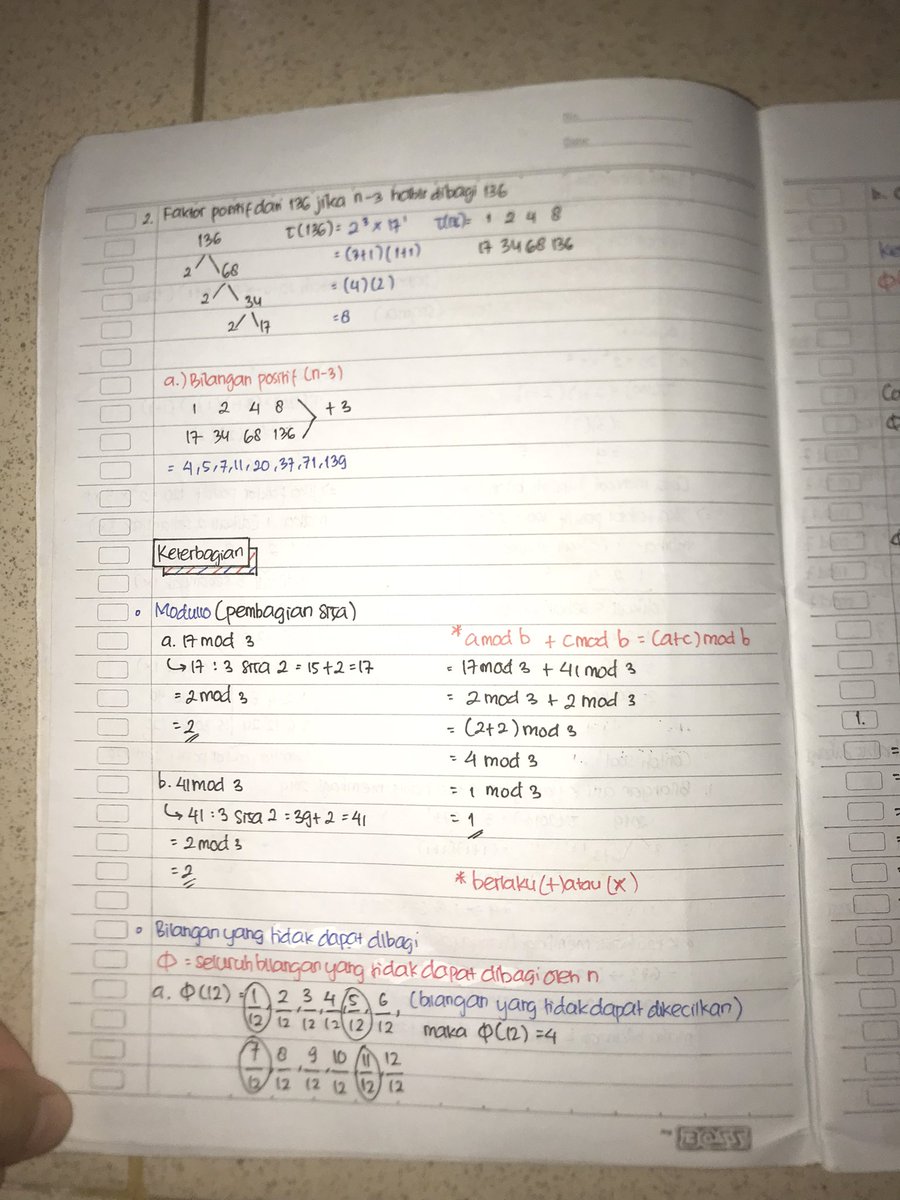 No.
Date
2. Faktor positif dari 136 jika n-3 habis dibagi 136
136
2 68
2 34
2 17
τ(136) = 2³ × 17¹
= (3+1)(1+1)
= (4)(2)
= 8
τ(n) = 1 2 4 8
17 34 68 136
a.) Bilangan positif (n-3)
1 2 4 8
17 34 68 136
+ 3
= 4,5,7,11,20,37,71,139
Keterbagian
• Modulo (pembagian sisa)
a. 17 mod 3
↳ 17 : 3 sisa 2 = 15+2 = 17
= 2 mod 3
= 2
b. 41 mod 3
↳ 41 : 3 sisa 2 = 39+2 = 41
= 2 mod 3
= 2
* a mod b + c mod b = (a+c) mod b
= 17 mod 3 + 41 mod 3
= 2 mod 3 + 2 mod 3
= (2+2) mod 3
= 4 mod 3
= 1 mod 3
= 1
* berlaku (+) atau (×)
• Bilangan yang tidak dapat dibagi
Φ = seluruh bilangan yang tidak dapat dibagi oleh n
a. Φ(12) = 1/12, 2/12, 3/12, 4/12, 5/12, 6/12, (bilangan yang tidak dapat dikecilkan)
maka Φ(12) = 4
7/12, 8/12, 9/12, 10/12, 11/12, 12/12
BOSS
1.